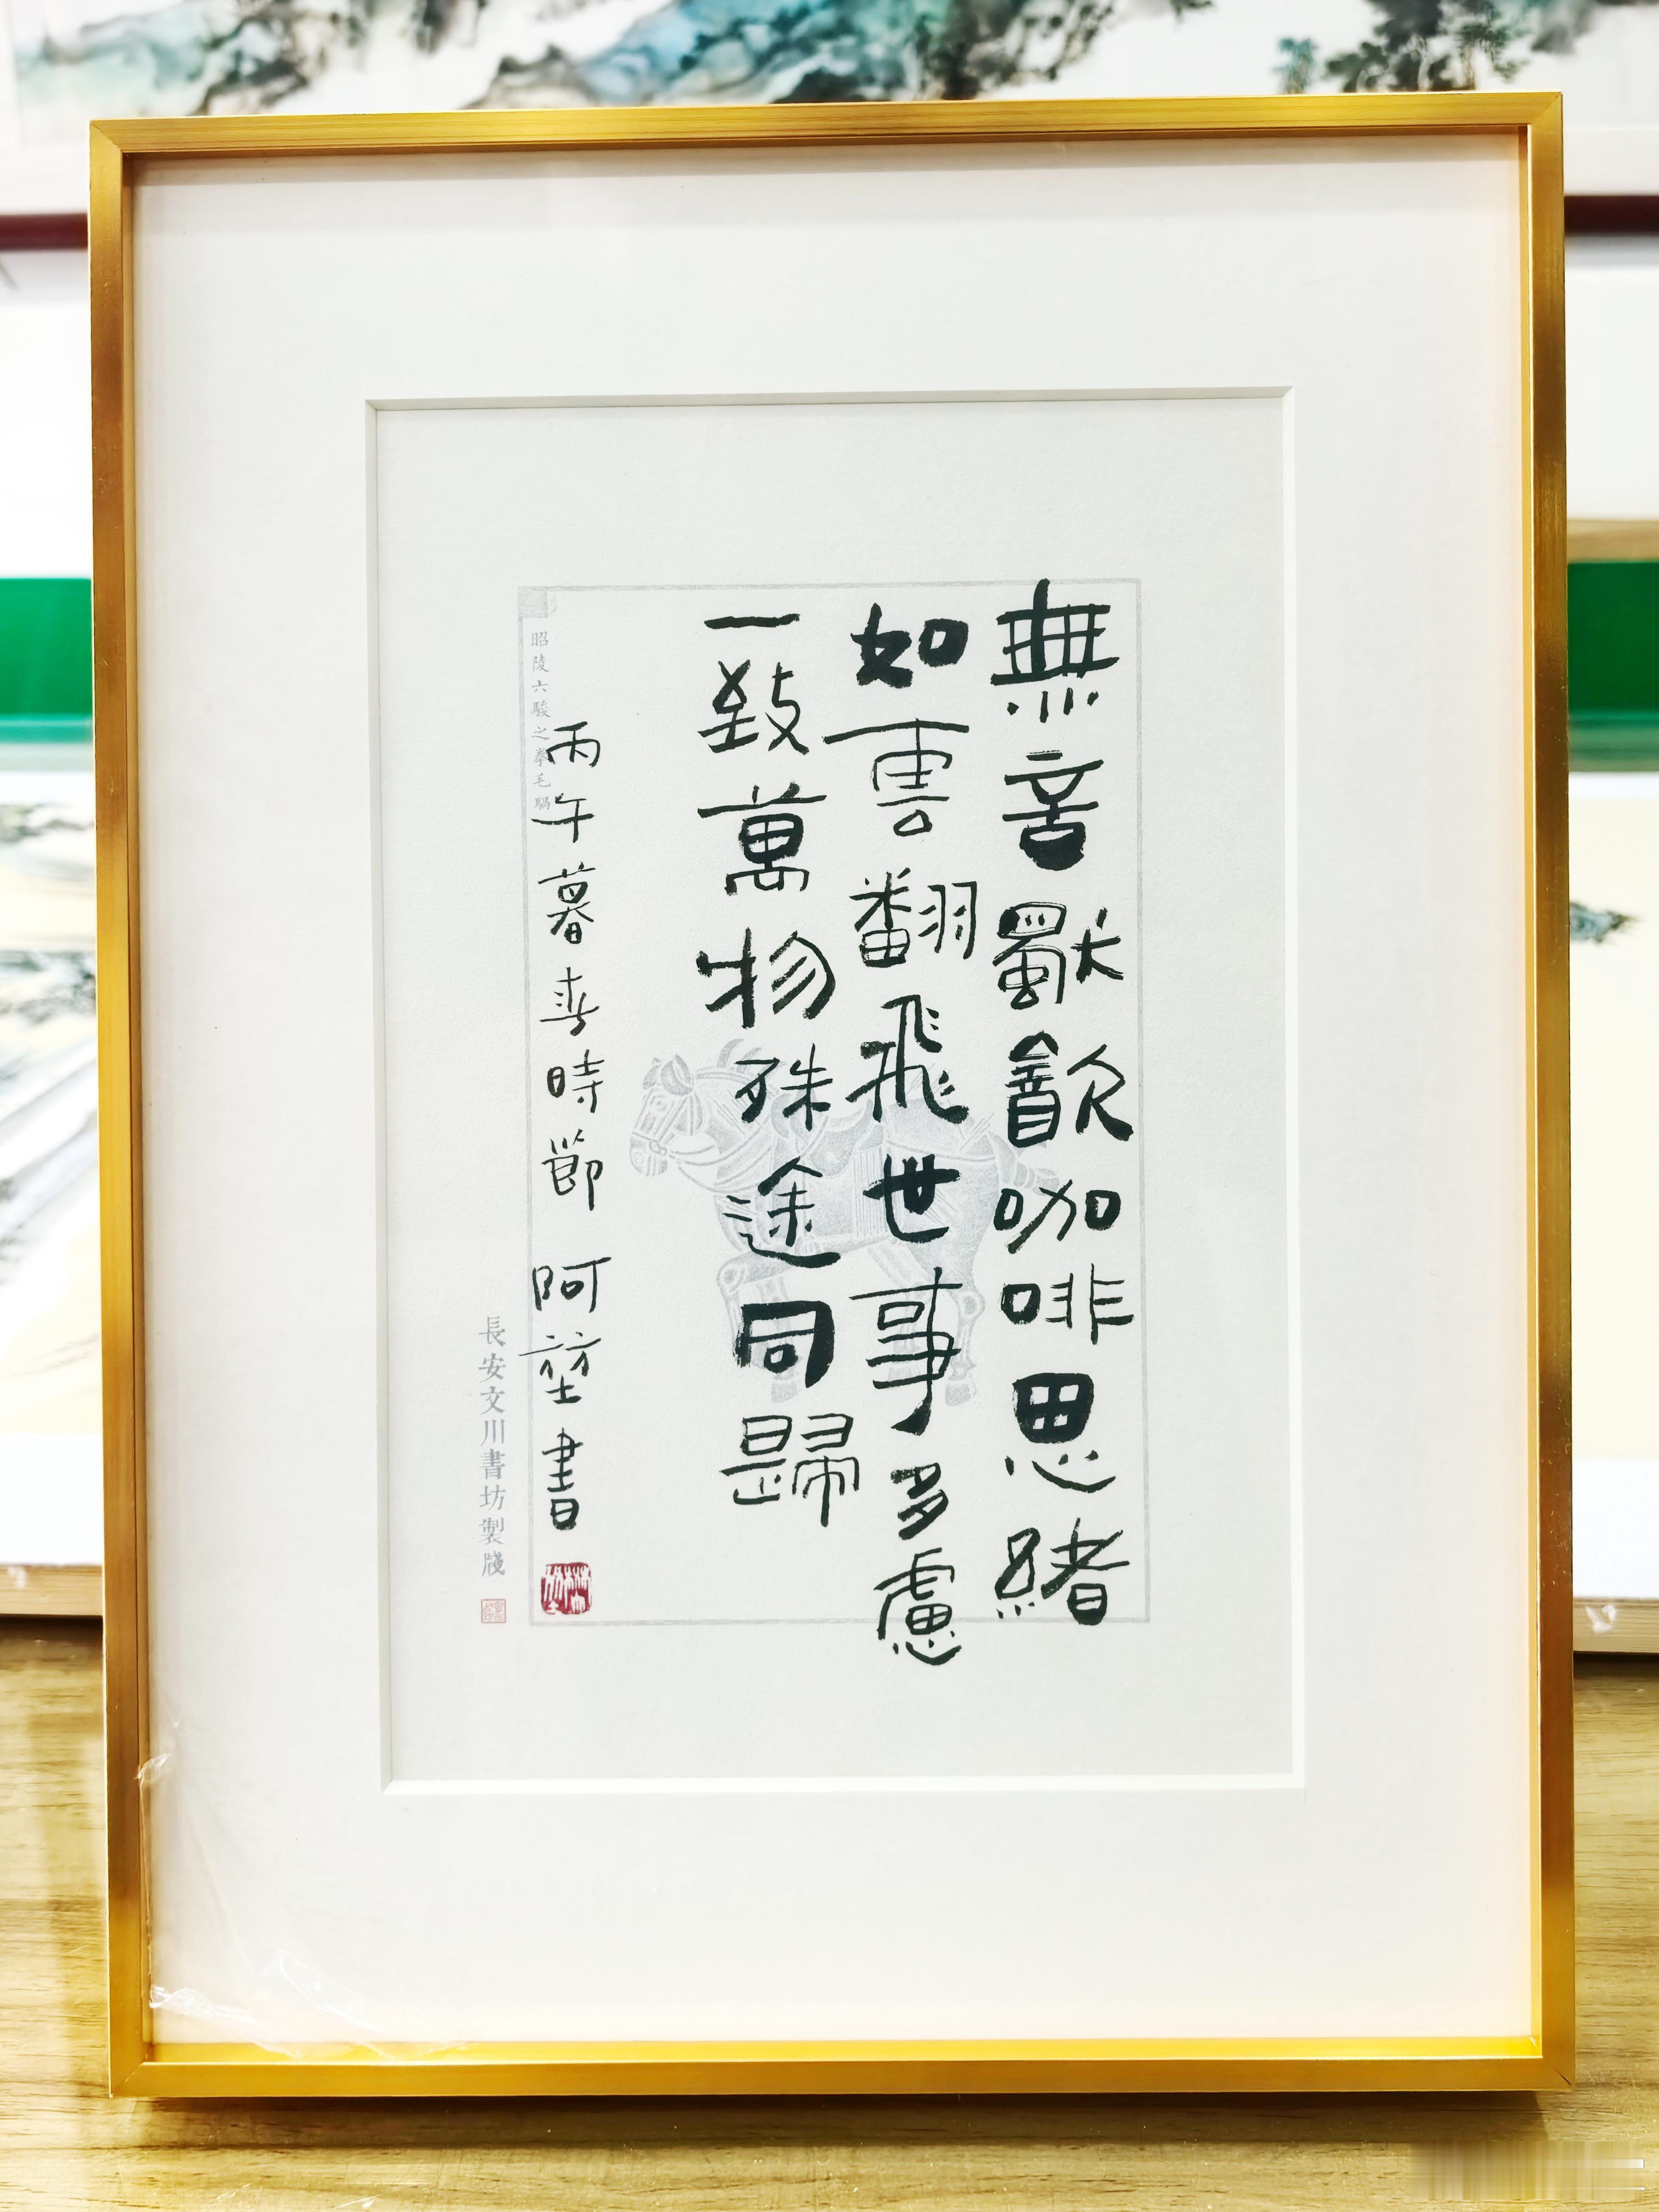 無言獨飲咖啡思緒
如雲翻飛世事多慮
一致萬物殊途同歸
丙午暮春時節 阿堃書
昭陵六駿之拳毛騧
長安文川書坊製牋